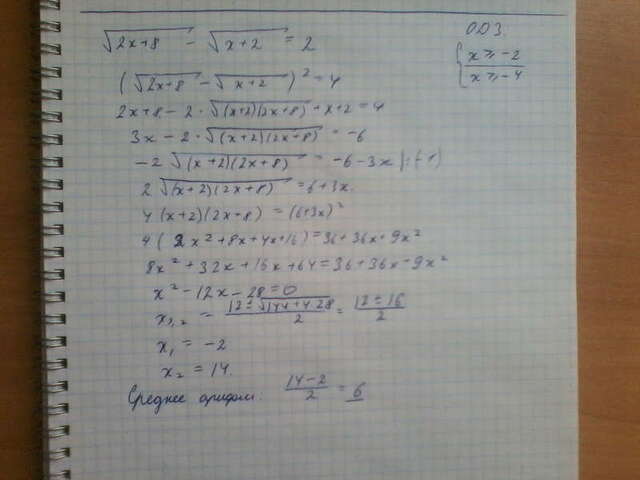 √(2x+8) - √(x+2) = 2
ОДЗ.
{ x ≥ -2
x ≥ -4
(√(2x+8) - √(x+2))² = 4
2x+8 - 2·√((x+2)(2x+8)) + x+2 = 4
3x - 2·√((x+2)(2x+8)) = -6
-2√((x+2)(2x+8)) = -6-3x |:(-1)
2√((x+2)(2x+8)) = 6+3x.
4(x+2)(2x+8) = (6+3x)²
4(2x²+8x+4x+16) = 36+36x+9x²
8x²+32x+16x+64 = 36+36x+9x²
x²-12x-28=0
x₁,₂ = (12±√(144+4·28))/2 = (12±16)/2
x₁ = -2
x₂ = 14
Среднее арифм. (14-2)/2 = 6